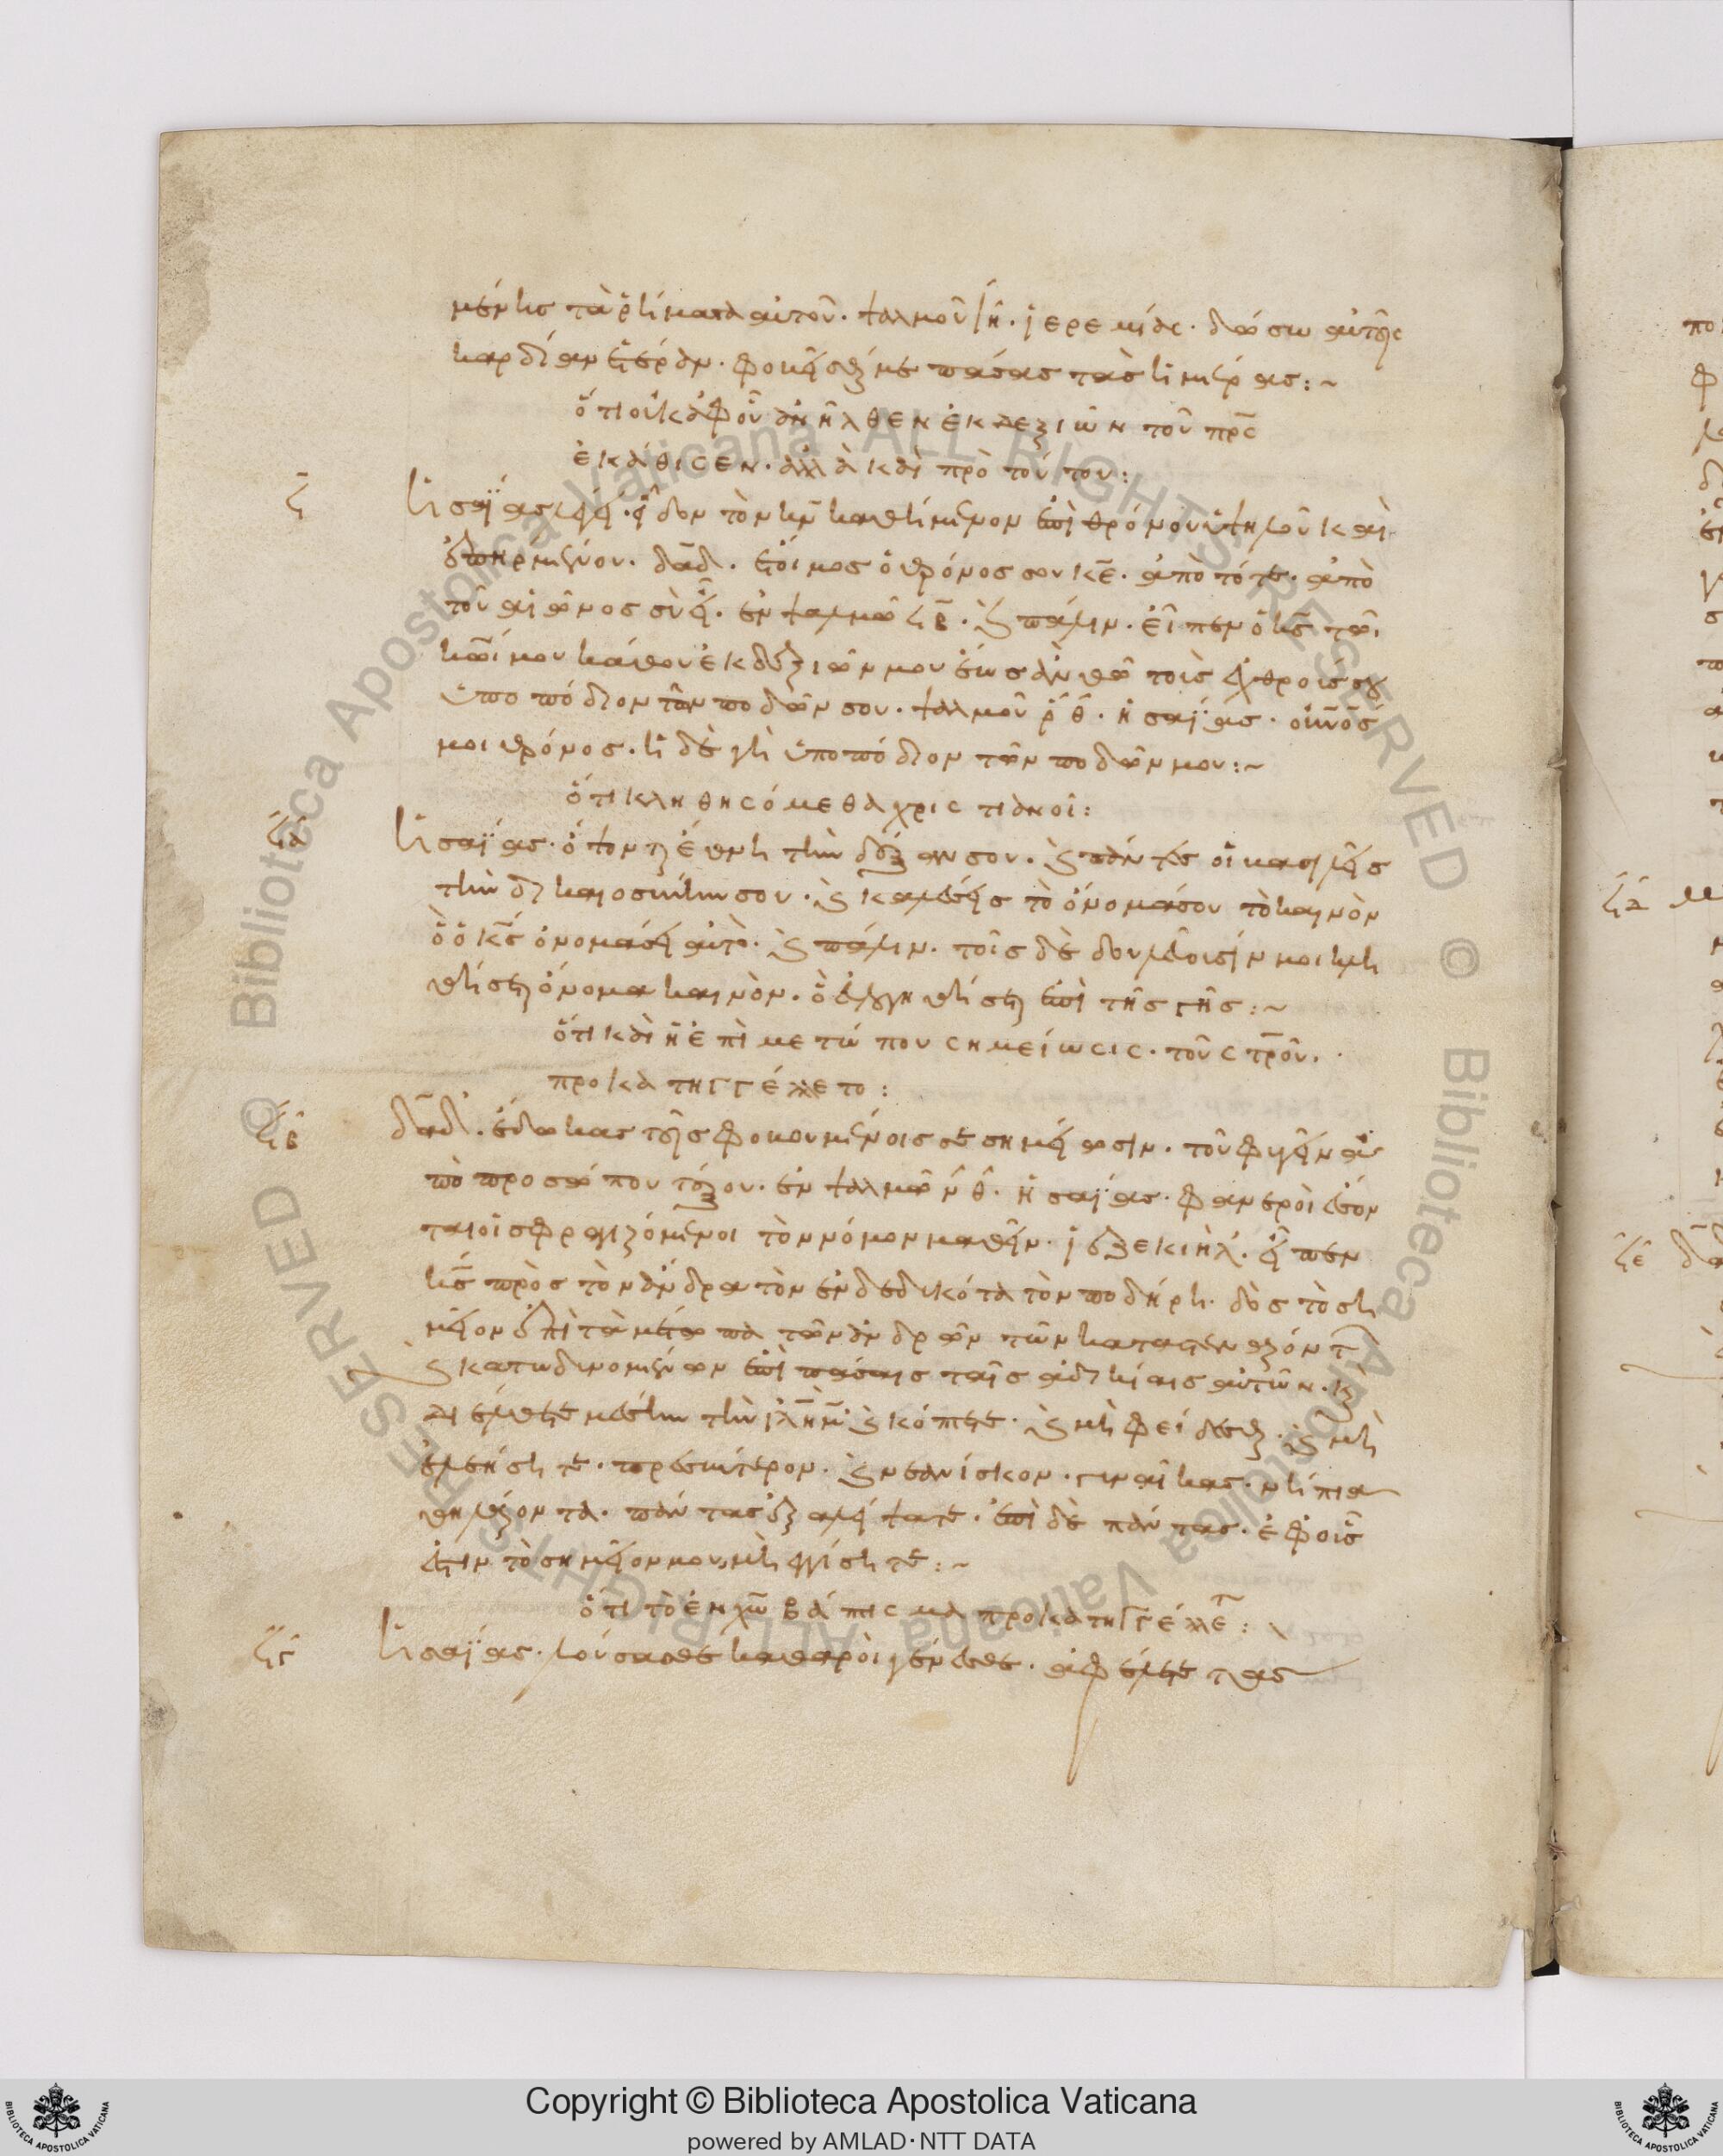 μένης τὰ ῥήματα αὐτοῦ. ψαλμοῦ ϟη. ἱερεμίας. δώσω αὐτοῖς
καρδίαν ἑτέραν. φοβεῖσθαί με πάσας τὰς ἡμέρας:~
ὅτι οὐκ ἀφοῦ ἀνῆλθεν ἐκ δεξιῶν τοῦ πρς
ἐκάθισεν. ἀλλὰ καὶ πρὸ τούτου:
ϟ
ἡσαΐας. εἶδον τὸν κν καθήμενον ἐπὶ θρόνου ὑψηλοῦ καὶ
ἐπηρμένου. δαδ. ἕτοιμος ὁ θρόνος σου κε. ἀπὸ τότε. ἀπὸ
τοῦ αἰῶνος σὺ εἶ. ἐν ψαλμῶ ϟβ. καὶ πάλιν. εἶπεν ὁ κς τῶι
κωι μου κάθου ἐκ δεξιῶν μου ἕως ἂν θῶ τοὺς ἐχθρούς σου
ὑποπόδιον τῶν ποδῶν σου. ψαλμοῦ ρθ. ἡσαΐας. ὁ οὐνός
μοι θρόνος. ἡ δὲ γῆ ὑποπόδιον τῶν ποδῶν μου:~
ὅτι κληθησόμεθα χριστιανοί:
ϟα
ἡσαΐας. ὄψονται ἔθνη τὴν δόξαν σου. καὶ πάντες οἱ βασιλεῖς
τὴν δικαιοσύνην σου. καὶ καλέσεις τὸ ὄνομά σου τὸ καινὸν
ὃ ὁ κς ὀνομάσει αὐτό. καὶ πάλιν. τοῖς δὲ δουλεύουσίν μοι κλη
θήσεται ὄνομα καινὸν. ὃ εὐλογηθήσεται ἐπὶ τῆς γῆς:~
ὅτι καὶ ἡ ἐπὶ μετώπου σημείωσις. τοῦ στρου.
προκατηγγέλλετο:
ϟβ
δαδ. ἔδωκας τοῖς φοβουμένοις σε σημείωσιν. τοῦ φυγεῖν ἀ
πὸ προσώπου τόξου. ἐν ψαλμῶ νθ. ἡσαΐας. φανεροὶ ἔσον
ται οἱ σφραγιζόμενοι τὸν νόμον μαθεῖν. ἰεζεκιήλ. εἶπεν
κς πρὸς τὸν ἄνδρα τὸν ἐνδεδυκότα τὸν ποδήρη. δὸς τὸ ση
μεῖον ἐπὶ τὰ μέτωπα τῶν ἀνδρῶν τῶν καταστεναζόντ
καὶ κατωδυνομένων ἐπὶ πάσαις ταῖς ἀδικίαις αὐτῶν. καὶ
διέλθετε μέσην τὴν ιλημ καὶ κόπτετε. καὶ μὴ φείδεσθαι. καὶ μὴ
ἐλεήσητε. πρεσβύτερον. καὶ νεανίσκον. γυναῖκας. νήπια
θηλάζοντα. πάντας ἐξαλείψατε. ἐπὶ δὲ πάντας. ἐφ οἷς
ἐστιν τὸ σημεῖον μου, μὴ ἐγγίσητε:~
ὅτι τὸ ἐν χω βάπτισμα προκατηγγέλλετ:
ϟγ
ἡσαΐας. λούσασθε καθαροὶ γένεσθε. ἀφέλετε τὰς